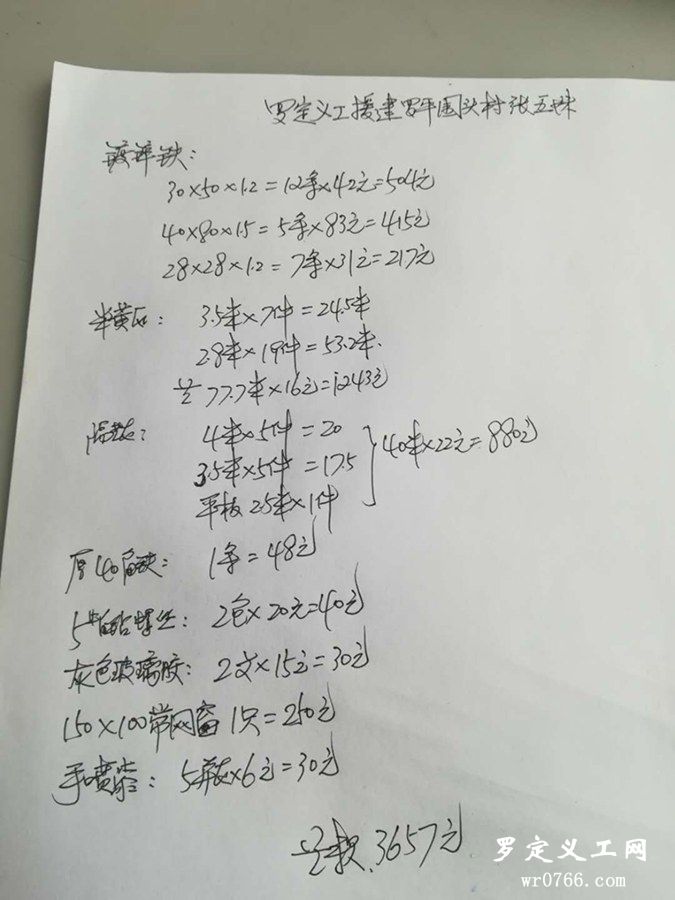 罗定义工援建罗平围头村张五妹
镀锌铁：
30×50×1.2=12条×42元=504元
40×80×1.5=5条×83元=415元
28×28×1.2=7条×31元=217元
半黄瓦： 3.5米×7件=24.5米
2.8米×19件=53.2米.
77.7米×16元=1243元
4米×5件=20
3.5米×5件=17.5
平板 2.5米×1件
40米×22元=880元
厚40角铁： 1条=48元
螺丝： 2包×20元=40元
灰色玻璃胶： 2支×15元=30元
150×100带网窗 1只=250元
手喷漆： 5瓶×6元=30元
3657元
罗定义工网
wr0766.com